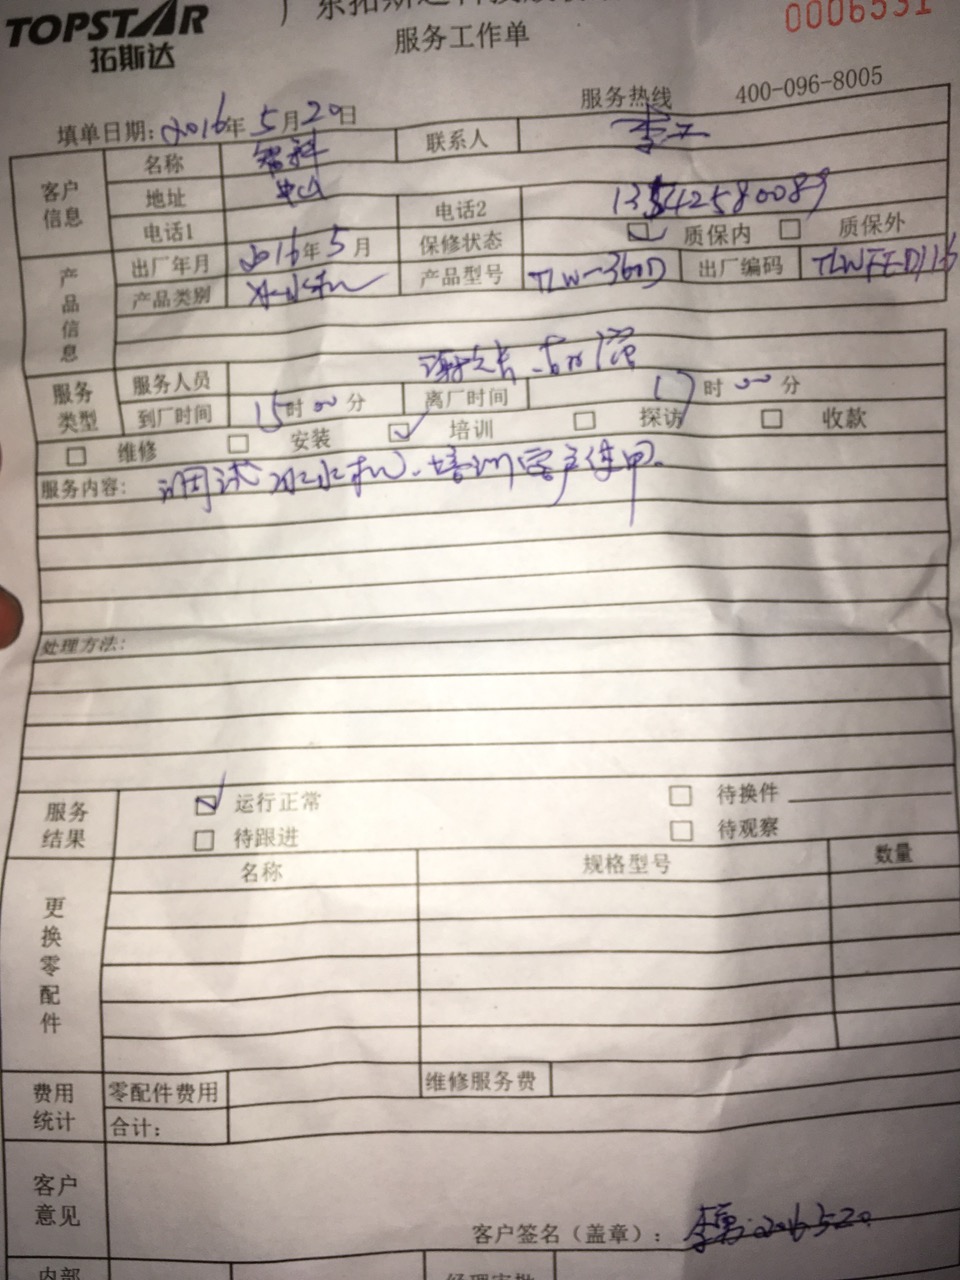 TOPSTAR
拓斯达
服务工作单
0006531
服务热线 400-096-8005
填单日期: 2016年5月20日
客户信息 名称 智科 联系人 李工
地址 中山
电话1 电话2 13542580089
产品信息 出厂年月 2016年5月 保修状态 质保内 质保外
产品类别 冰水机 产品型号 TLW-360D 出厂编码
服务类型 服务人员
到厂时间 15时00分 离厂时间 17时00分
维修 安装 培训 探访 收款
服务内容: 调试冰水机、培训客户使用。
处理方法:
服务结果 运行正常 待换件
待跟进 待观察
更换零配件 名称 规格型号 数量
费用统计 零配件费用 维修服务费
合计:
客户意见
客户签名（盖章）: 李勇 2016.5.20
内部